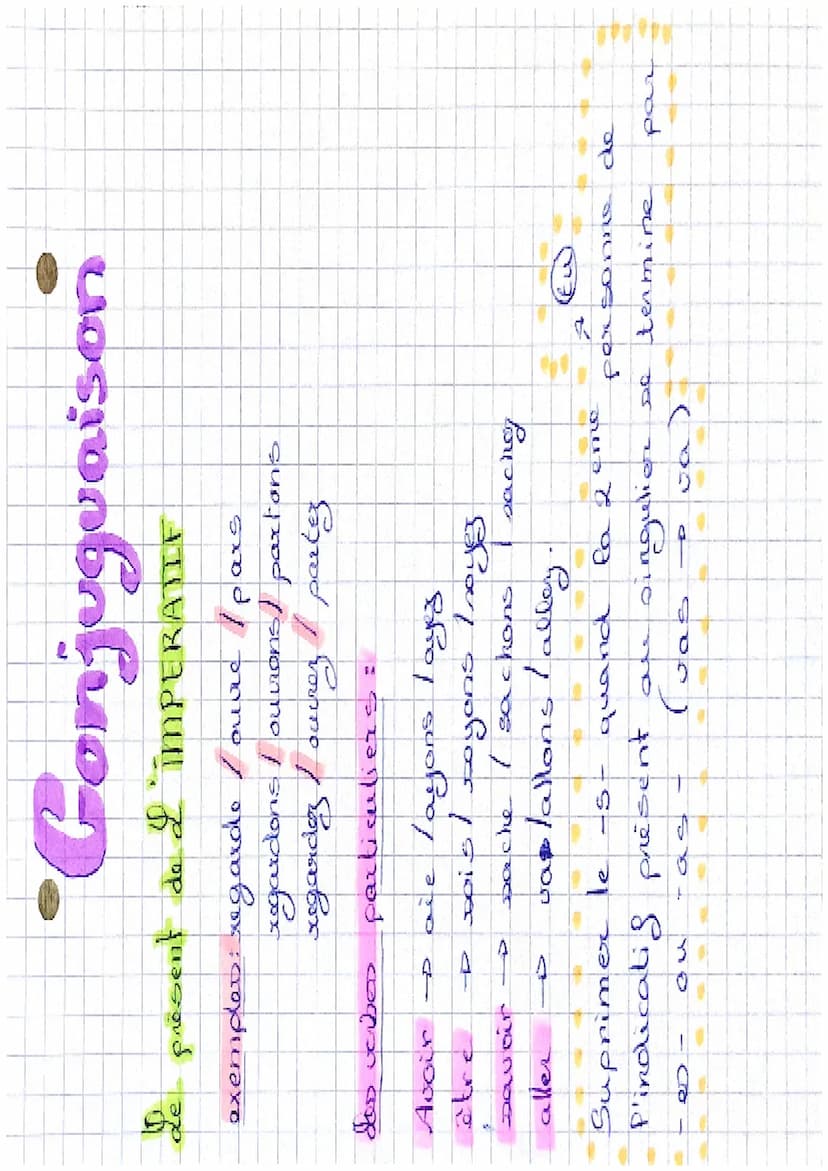 Conjuguaison
Le présent de L'iMPERATIF
exemples: regarde / ouvre / pars
regardons / ouvrons / partons
regardez / ouvrez / partez
Les verbes particuliers :
Avoir → aie / ayons / ayez
être → sois / soyons / soyez
savoir → sache / sachons / sachez
aller → va / allons / allez.
Suprimer le -s- quand la 2 eme personne de
l'indicatif présent au singulier se termine par
-es- ou -as- (vas → va)